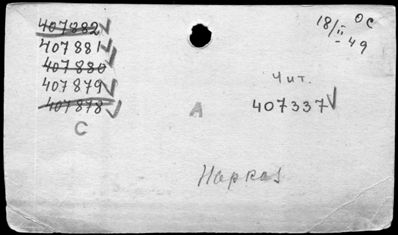 407882
407881
407880
407879
407878
С
А
18/II-49
ОС
Чит.
407337